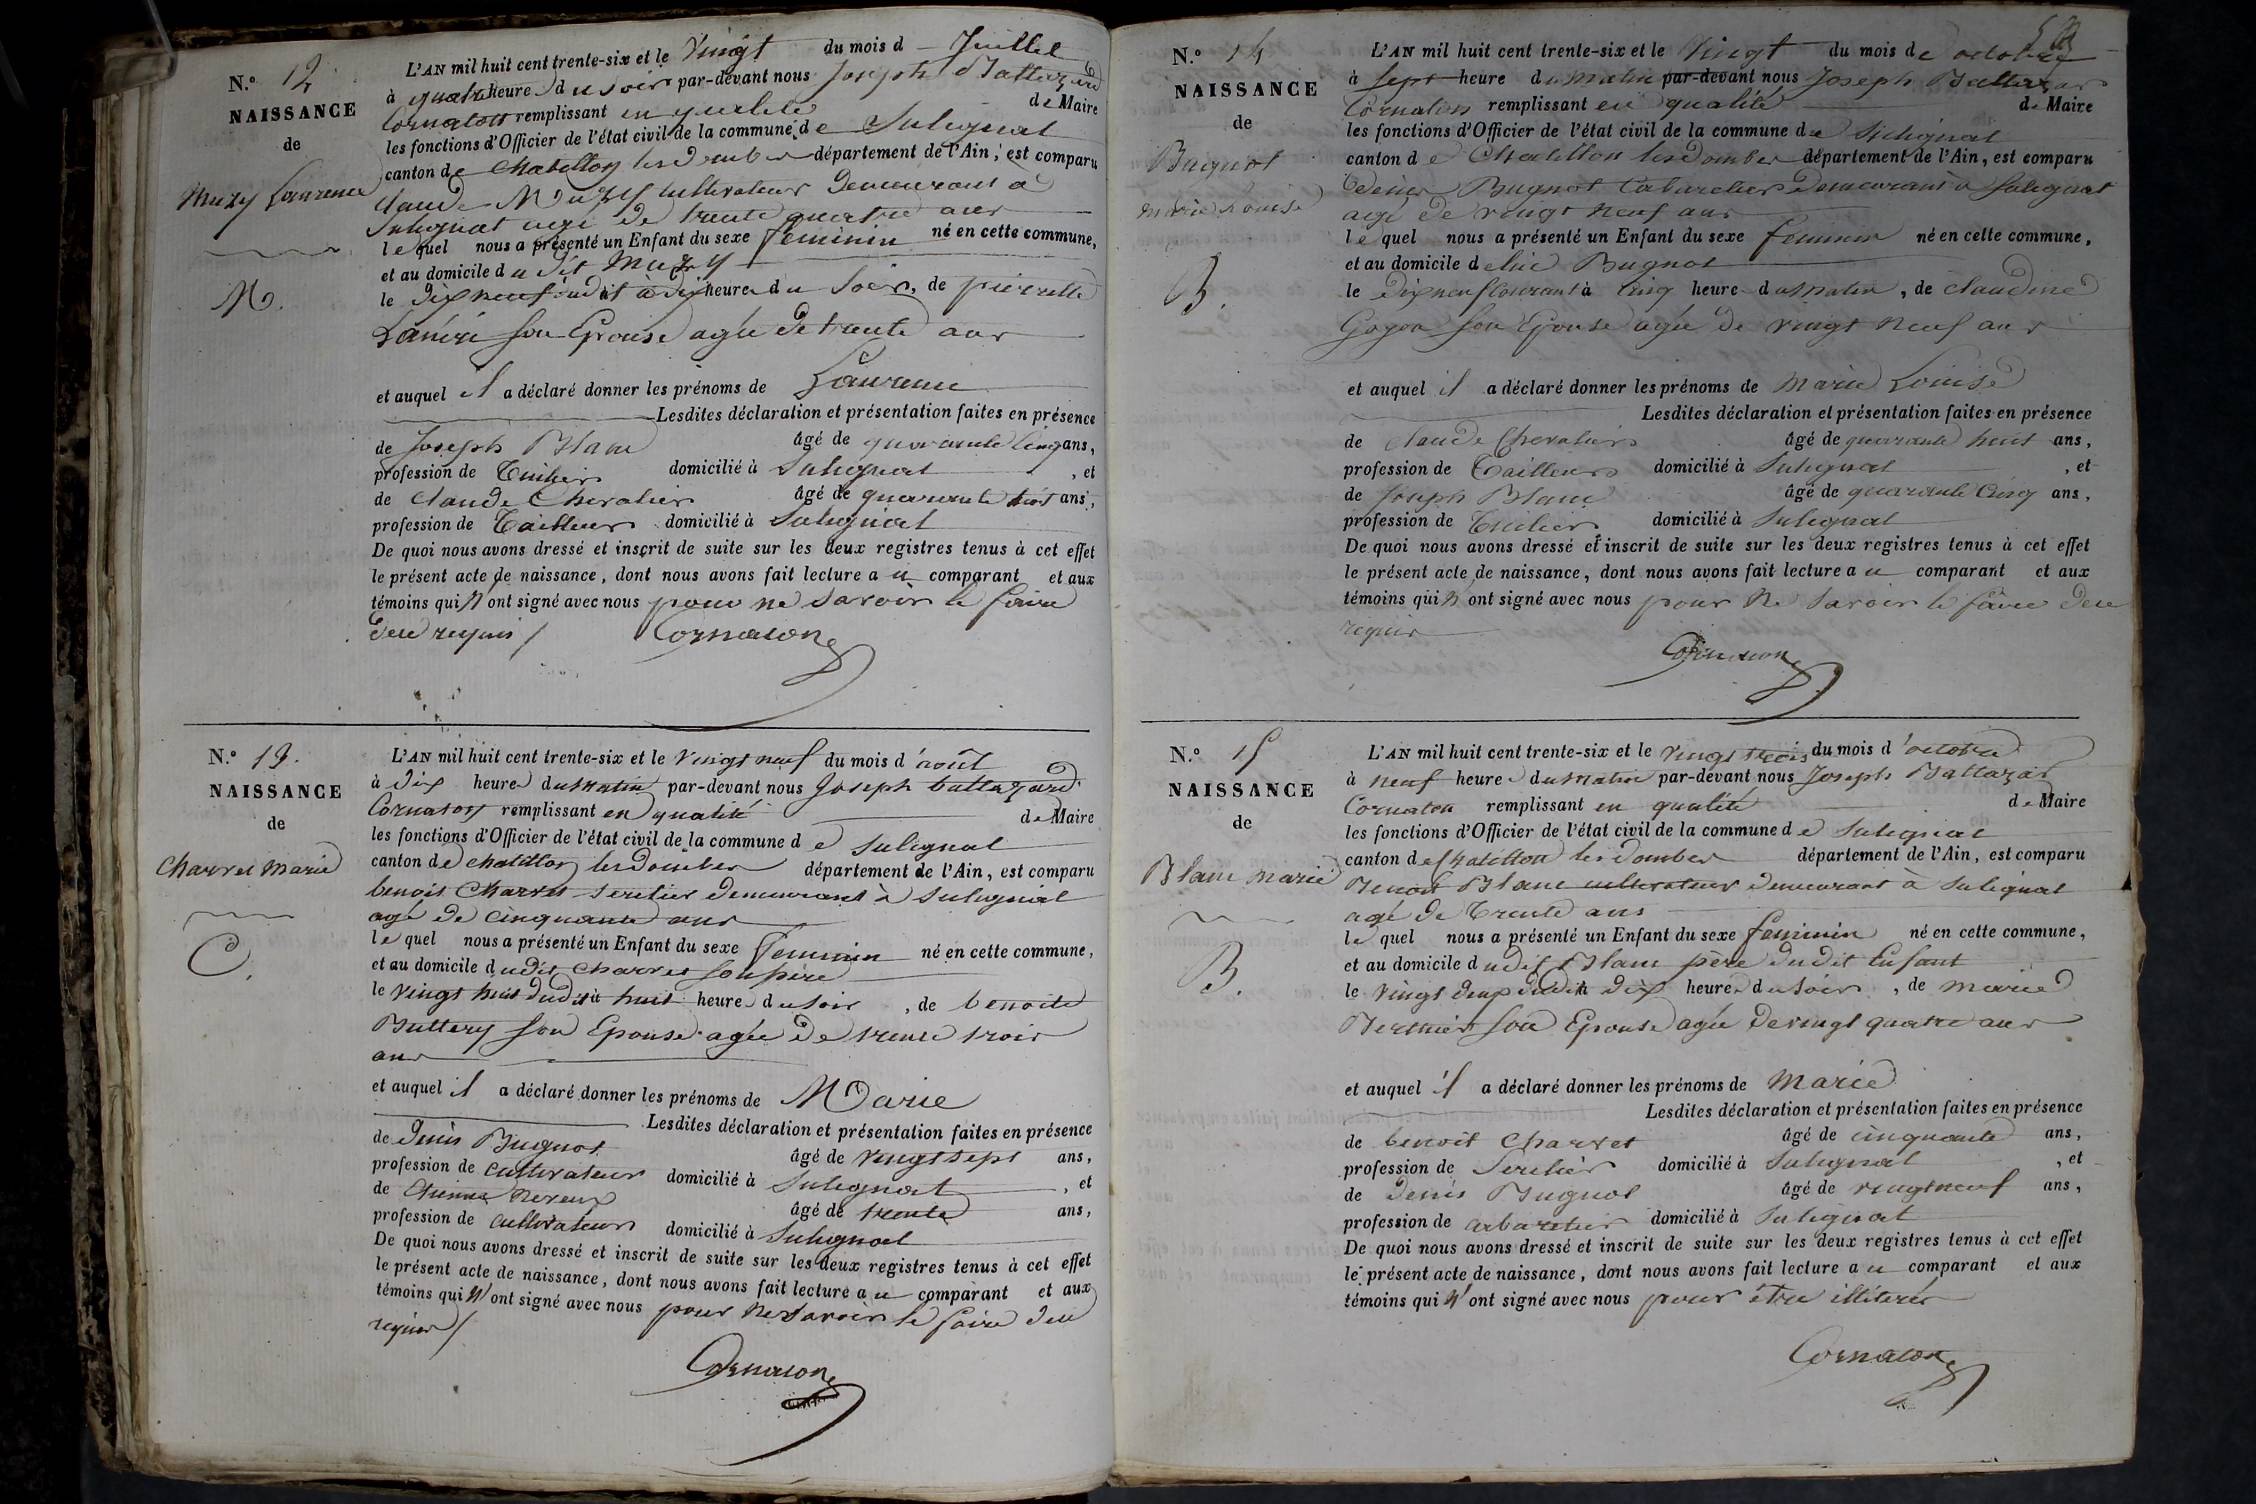 N.° 12
NAISSANCE
de
Muzy Laurence
M.
L'AN mil huit cent trente-six et le Vingt du mois d Juillet
à quatre heure du soir par-devant nous Joseph Battazard
Cornaton remplissant en qualité de Maire
les fonctions d'Officier de l'état civil de la commune de Sulignat
canton de Chatillon les dombes département de l'Ain, est comparu
Claude Muzy cultivateur demeurant à
Sulignat agé de trente quatre ans
lequel nous a présenté un Enfant du sexe féminin né en cette commune,
et au domicile du dit Muzy
le dix neuf dudit à dix heure du soir, de pierrette
son Epouse agée de trente ans
et auquel il a déclaré donner les prénoms de Laurence
Lesdites déclaration et présentation faites en présence
de Joseph Blanc âgé de quarante cinq ans,
profession de Tuilier domicilié à Sulignat, et
de Claude Chevalier âgé de quarante huit ans,
profession de Tailleur domicilié à Sulignat
De quoi nous avons dressé et inscrit de suite sur les deux registres tenus à cet effet
le présent acte de naissance, dont nous avons fait lecture au comparant et aux
témoins qui n'ont signé avec nous pour ne savoir le faire
de ce requis /
Cornaton
N.° 13.
NAISSANCE
de
Charvet Marie
C.
L'AN mil huit cent trente-six et le Vingt neuf du mois d'août
à dix heure du matin par-devant nous Joseph battazard
Cornaton remplissant en qualité de Maire
les fonctions d'Officier de l'état civil de la commune de Sulignat
canton de chatillon les dombes département de l'Ain, est comparu
benoit Charvet demeurant à Sulignat
agé de cinquante ans
lequel nous a présenté un Enfant du sexe feminin né en cette commune,
et au domicile dudit Charvet son père
le vingt huit dudit à huit heure du soir, de benoite
Buttery son Epouse agée de trente trois
ans
et auquel il a déclaré donner les prénoms de Marie
Lesdites déclaration et présentation faites en présence
de denis Bugnot âgé de vingt sept ans,
profession de cultivateur domicilié à Sulignat, et
de Etienne âgé de trente ans,
profession de cultivateur domicilié à Sulignat
De quoi nous avons dressé et inscrit de suite sur les deux registres tenus à cet effet
le présent acte de naissance, dont nous avons fait lecture au comparant et aux
témoins qui n'ont signé avec nous pour ne savoir le faire de ce
requis /
Cornaton
N.° 14
NAISSANCE
de
Bugnot
marie Louise
B.
L'AN mil huit cent trente-six et le Vingt du mois de octobre
à sept heure du matin par-devant nous Joseph Battazar
Cornaton remplissant en qualité de Maire
les fonctions d'Officier de l'état civil de la commune de Sulignat
canton de Chatillon les dombes département de l'Ain, est comparu
denis Bugnot Cabaretier demeurant à Sulignat
agé de vingt neuf ans
lequel nous a présenté un Enfant du sexe feminin né en cette commune,
et au domicile de Bugnot
le dix neuf courant à cinq heure du matin, de claudine
son Epouse agée de vingt neuf ans
et auquel il a déclaré donner les prénoms de Marie Louise
Lesdites déclaration et présentation faites en présence
de claude Chevalier âgé de quarante huit ans,
profession de Tailleur domicilié à Sulignat, et
de Joseph Blanc âgé de quarante cinq ans,
profession de Tuilier domicilié à Sulignat
De quoi nous avons dressé et inscrit de suite sur les deux registres tenus à cet effet
le présent acte de naissance, dont nous avons fait lecture au comparant et aux
témoins qui n'ont signé avec nous pour ne savoir le faire de ce
requis
Cornaton
N.° 15
NAISSANCE
de
Blanc marie
B.
L'AN mil huit cent trente-six et le vingt trois du mois d'octobre
à neuf heure du matin par-devant nous Joseph Battazar
Cornaton remplissant en qualité de Maire
les fonctions d'Officier de l'état civil de la commune de Sulignat
canton de Chatillon les dombes département de l'Ain, est comparu
Benoit Blanc cultivateur demeurant à Sulignat
agé de trente ans
lequel nous a présenté un Enfant du sexe feminin né en cette commune,
et au domicile dudit Blanc père dudit Enfant
le vingt deux dudit à dix heure du soir, de marie
Berthier son Epouse agée de vingt quatre ans
et auquel il a déclaré donner les prénoms de Marie
Lesdites déclaration et présentation faites en présence
de benoit Charvet âgé de cinquante ans,
profession de domicilié à Sulignat, et
de denis Bugnot âgé de vingt neuf ans,
profession de cabaretier domicilié à Sulignat
De quoi nous avons dressé et inscrit de suite sur les deux registres tenus à cet effet
le présent acte de naissance, dont nous avons fait lecture au comparant et aux
témoins qui n'ont signé avec nous pour être illiterés
Cornaton